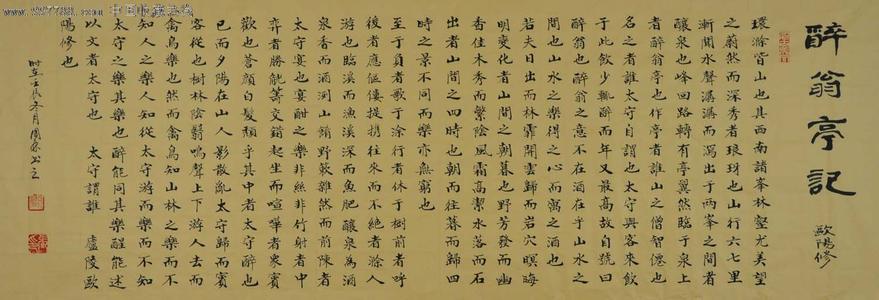 醉翁亭記
歐陽修
環滁皆山也其西南諸峯林壑尤美望
之蔚然而深秀者琅琊也山行六七里
漸聞水聲潺潺而瀉出于兩峯之間者
釀泉也峰回路轉有亭翼然臨于泉上
者醉翁亭也作亭者誰山之僧智僊也
名之者誰太守自謂也太守與客來飲
于此飲少輒醉而年又最高故自號曰
醉翁也醉翁之意不在酒在乎山水之
間也山水之樂得之心而寓之酒也
若夫日出而林霏開雲歸而岩穴暝晦
明變化者山間之朝暮也野芳發而幽
香佳木秀而繁陰風霜高潔水落而石
出者山間之四時也朝而往暮而歸四
時之景不同而樂亦無窮也
至于負者歌于塗行者休于樹前者呼
後者應傴僂提攜往來而不絕者滁人
遊也臨溪而漁溪深而魚肥釀泉為酒
泉香而酒洌山餚野蔌雜然而前陳者
太守宴也宴酣之樂非絲非竹射者中
弈者勝觥籌交錯起坐而喧嘩者衆賓
歡也蒼顏白髮頹乎其中者太守醉也
已而夕陽在山人影散亂太守歸而賓
客從也樹林陰翳鳴聲上下游人去而
禽鳥樂也然而禽鳥知山林之樂而不
知人之樂人知從太守游而樂而不知
太守之樂其樂也醉能同其樂醒能述
以文者太守也 太守謂誰 廬陵歐
陽修也
時在壬辰冬月